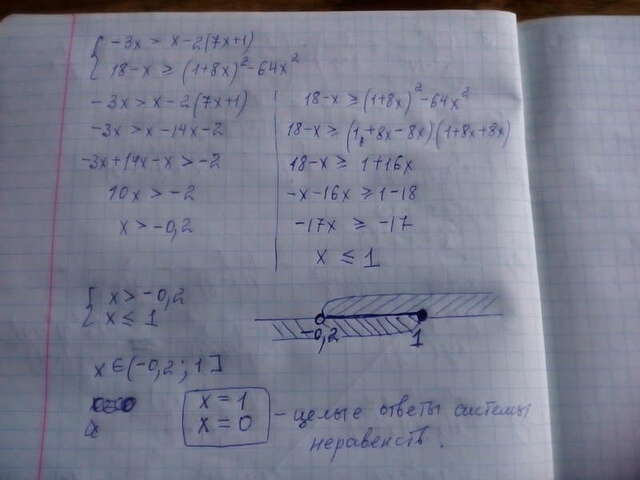 { -3x > x-2(7x+1)
18-x ≥ (1+8x)²-64x²
-3x > x-2(7x+1)
-3x > x-14x-2
-3x+14x-x > -2
10x > -2
x > -0,2
18-x ≥ (1+8x)²-64x²
18-x ≥ (1+8x-8x)(1+8x+8x)
18-x ≥ 1+16x
-x-16x ≥ 1-18
-17x ≥ -17
x ≤ 1
{ x > -0,2
x ≤ 1
-0,2 1
x ∈ (-0,2 ; 1]
x = 1
x = 0
- целые ответы системы
неравенств.